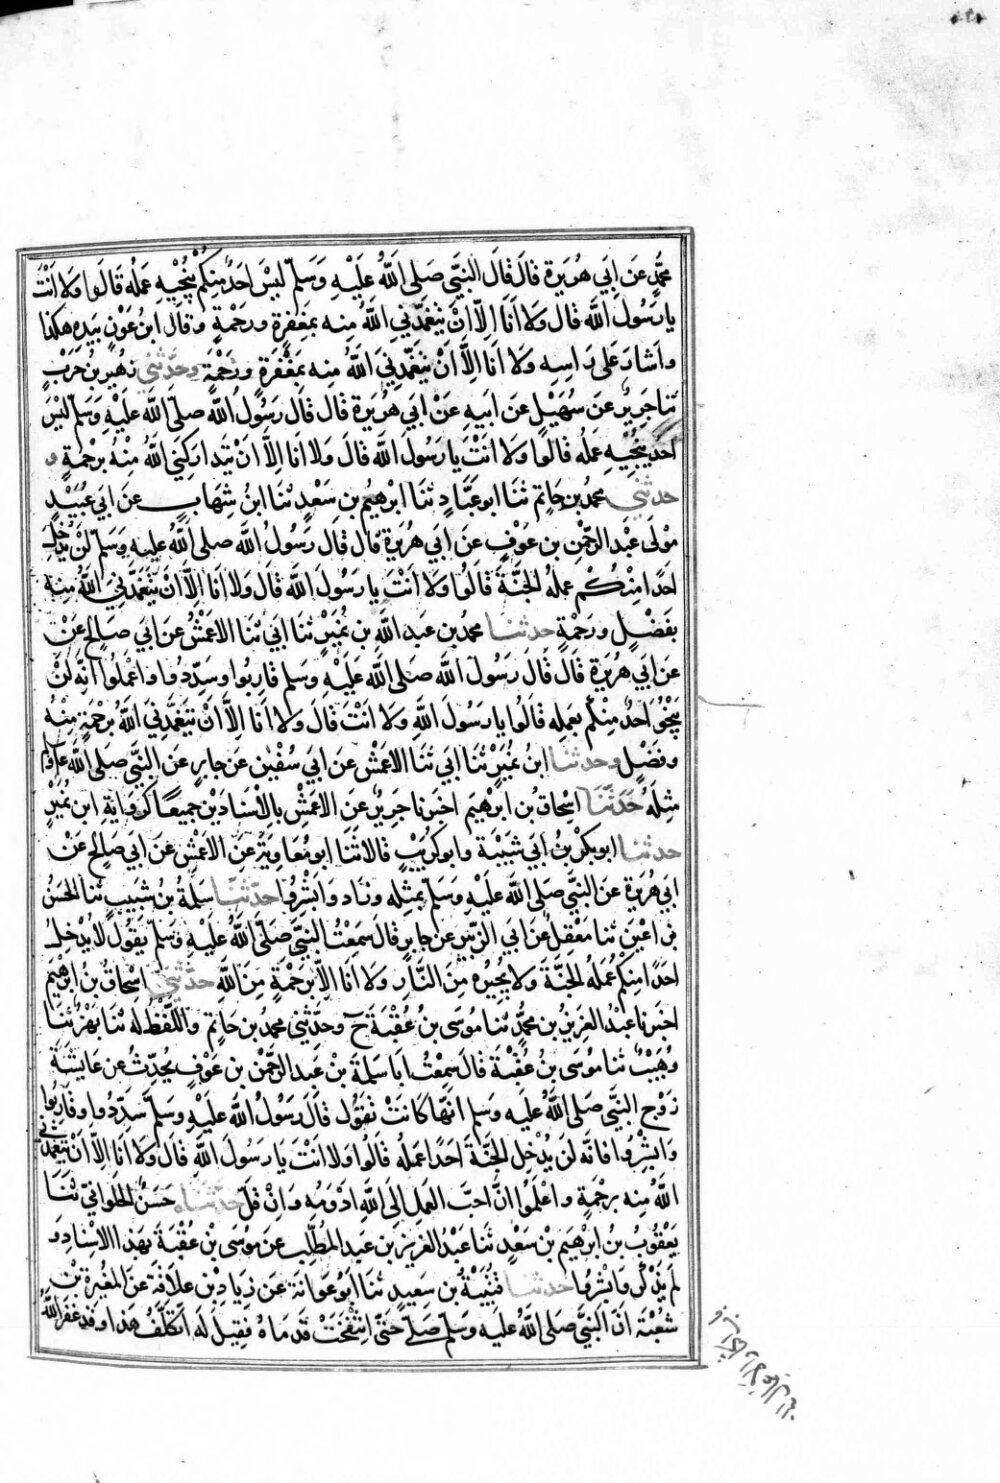 محمد عن ابي هريرة قال قال النبي صلى الله عليه وسلم ليس احد منكم ينجيه عمله قالوا ولا انت
يا رسول الله قال ولا انا الا ان يتغمدني الله منه بمغفرة ورحمة وقال ابن عون بيده هكذا
واشار على راسه ولا انا الا ان يتغمدني الله منه بمغفرة ورحمة وحدثني زهير بن حرب
ثنا جرير عن سهيل عن ابيه عن ابي هريرة قال قال رسول الله صلى الله عليه وسلم ليس
احد ينجيه عمله قالوا ولا انت يا رسول الله قال ولا انا الا ان يتداركني الله منه برحمة و
حدثني محمد بن حاتم ثنا ابو عباد ثنا ابرهيم بن سعد ثنا ابن شهاب عن ابي عبيد
مولى عبد الرحمن بن عوف عن ابي هريرة قال قال رسول الله صلى الله عليه وسلم لن يدخل
احدا منكم عمله الجنة قالوا ولا انت يا رسول الله قال ولا انا الا ان يتغمدني الله منه
بفضل ورحمة حدثنا محمد بن عبد الله بن نمير ثنا ابي ثنا الاعمش عن ابي صالح عن
عن ابي هريرة قال قال رسول الله صلى الله عليه وسلم قاربوا وسددوا واعلموا انه لن
ينجو احد منكم بعمله قالوا يا رسول الله ولا انت قال ولا انا الا ان يتغمدني الله برحمة منه
وفضل وحدثنا ابن نمير ثنا ابي ثنا الاعمش عن ابي سفين عن جابر عن النبي صلى الله عليه وسلم
مثله حدثنا اسحاق بن ابرهيم اخبرنا جرير عن الاعمش بالاسنادين جميعا كرواية ابن نمير
حدثنا ابو بكر بن ابي شيبة وابو كريب قالا ثنا ابو معاوية عن الاعمش عن ابي صالح عن
ابي هريرة عن النبي صلى الله عليه وسلم بمثله وزاد وابشروا حدثنا سلمة بن شبيب ثنا الحسن
بن اعين ثنا معقل عن ابي الزبير عن جابر قال سمعت النبي صلى الله عليه وسلم يقول لا يدخل
احدا منكم عمله الجنة ولا يجيره من النار ولا انا الا برحمة من الله حدثني اسحاق بن ابرهيم
اخبرنا عبد العزيز بن محمد ثنا موسى بن عقبة ح وحدثني محمد بن حاتم واللفظ له ثنا بهز ثنا
وهيب ثنا موسى بن عقبة قال سمعت ابا سلمة بن عبد الرحمن بن عوف يحدث عن عايشة
زوج النبي صلى الله عليه وسلم انها كانت تقول قال رسول الله عليه وسلم سددوا وقاربوا
وابشروا فانه لن يدخل الجنة احدا عمله قالوا ولا انت يا رسول الله قال ولا انا الا ان يتغمدني
الله منه برحمة واعلموا ان احب العمل الى الله ادومه وان قل حدثناه حسن الحلواني ثنا
يعقوب بن ابرهيم بن سعد ثنا عبد العزيز بن عبد المطلب عن موسى بن عقبة بهذا الاسناد و
لم يذكر وابشروا حدثنا قتيبة بن سعيد ثنا ابو عوانة عن زياد بن علاقة عن المغيرة بن
شعبة ان النبي صلى الله عليه وسلم صلى حتى انتفخت قدماه فقيل له اتكلف هذا وقد غفر الله